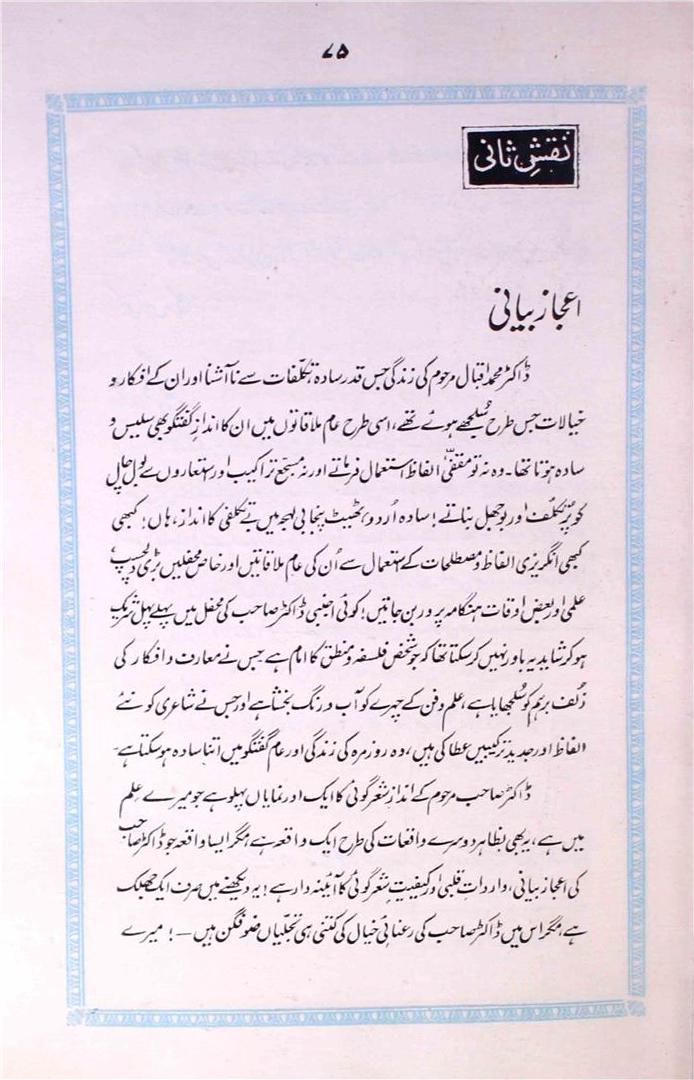 ۷۵
نقشِ ثانی
اعجاز بیانی
ڈاکٹر محمد اقبال مرحوم کی زندگی جس قدر سادہ، تکلّفات سے ناآشنا اور ان کے افکار و
خیالات جس طرح سُلجھے ہوئے تھے، اسی طرح عام ملاقاتوں میں ان کا اندازِ گفتگو بھی سلیس و
سادہ ہوتا تھا۔ وہ نہ تو مقفّیٰ الفاظ استعمال فرماتے اور نہ مسجّع تراکیب اور استعاروں سے بول چال
کو پُرتکلّف اور بوجھل بناتے! سادہ اُردو، ٹھیٹ پنجابی لہجہ میں بے تکلفی کا انداز، ہاں! کبھی
کبھی انگریزی الفاظ و مصطلحات کے استعمال سے اُن کی عام ملاقاتیں اور خاص محفلیں بڑی دلچسپ،
علمی اور بعض اوقات ہنگامہ پرور بن جاتیں! کوئی اجنبی ڈاکٹر صاحب کی محفل میں پہلے پہل شریک
ہو کر شاید یہ باور نہیں کر سکتا تھا کہ جو شخص فلسفہ و منطق کا امام ہے جس نے معارف و افکار کی
زُلف برہم کو سُلجھایا ہے، علم و فن کے چہرے کو آب و رنگ بخشا ہے اور جس نے شاعری کو نئے
الفاظ اور جدید ترکیبیں عطا کی ہیں، وہ روزمرہ کی زندگی اور عام گفتگو میں اتنا سادہ ہو سکتا ہے۔
ڈاکٹر صاحب مرحوم کے اندازِ شعر گوئی کا ایک اور نمایاں پہلو ہے جو میرے علم
میں ہے، یہ بھی بظاہر دوسرے واقعات کی طرح ایک واقعہ ہے مگر ایسا واقعہ جو ڈاکٹر صاحب
کی اعجاز بیانی، وارداتِ قلبی اور کیفیتِ شعر گوئی کا آئینہ دار ہے! یہ دیکھنے میں صرف ایک جھلک
ہے، مگر اس میں ڈاکٹر صاحب کی رعنائیِ خیال کی کتنی ہی تجلّیاں ضوفگن ہیں ۔۔! میرے